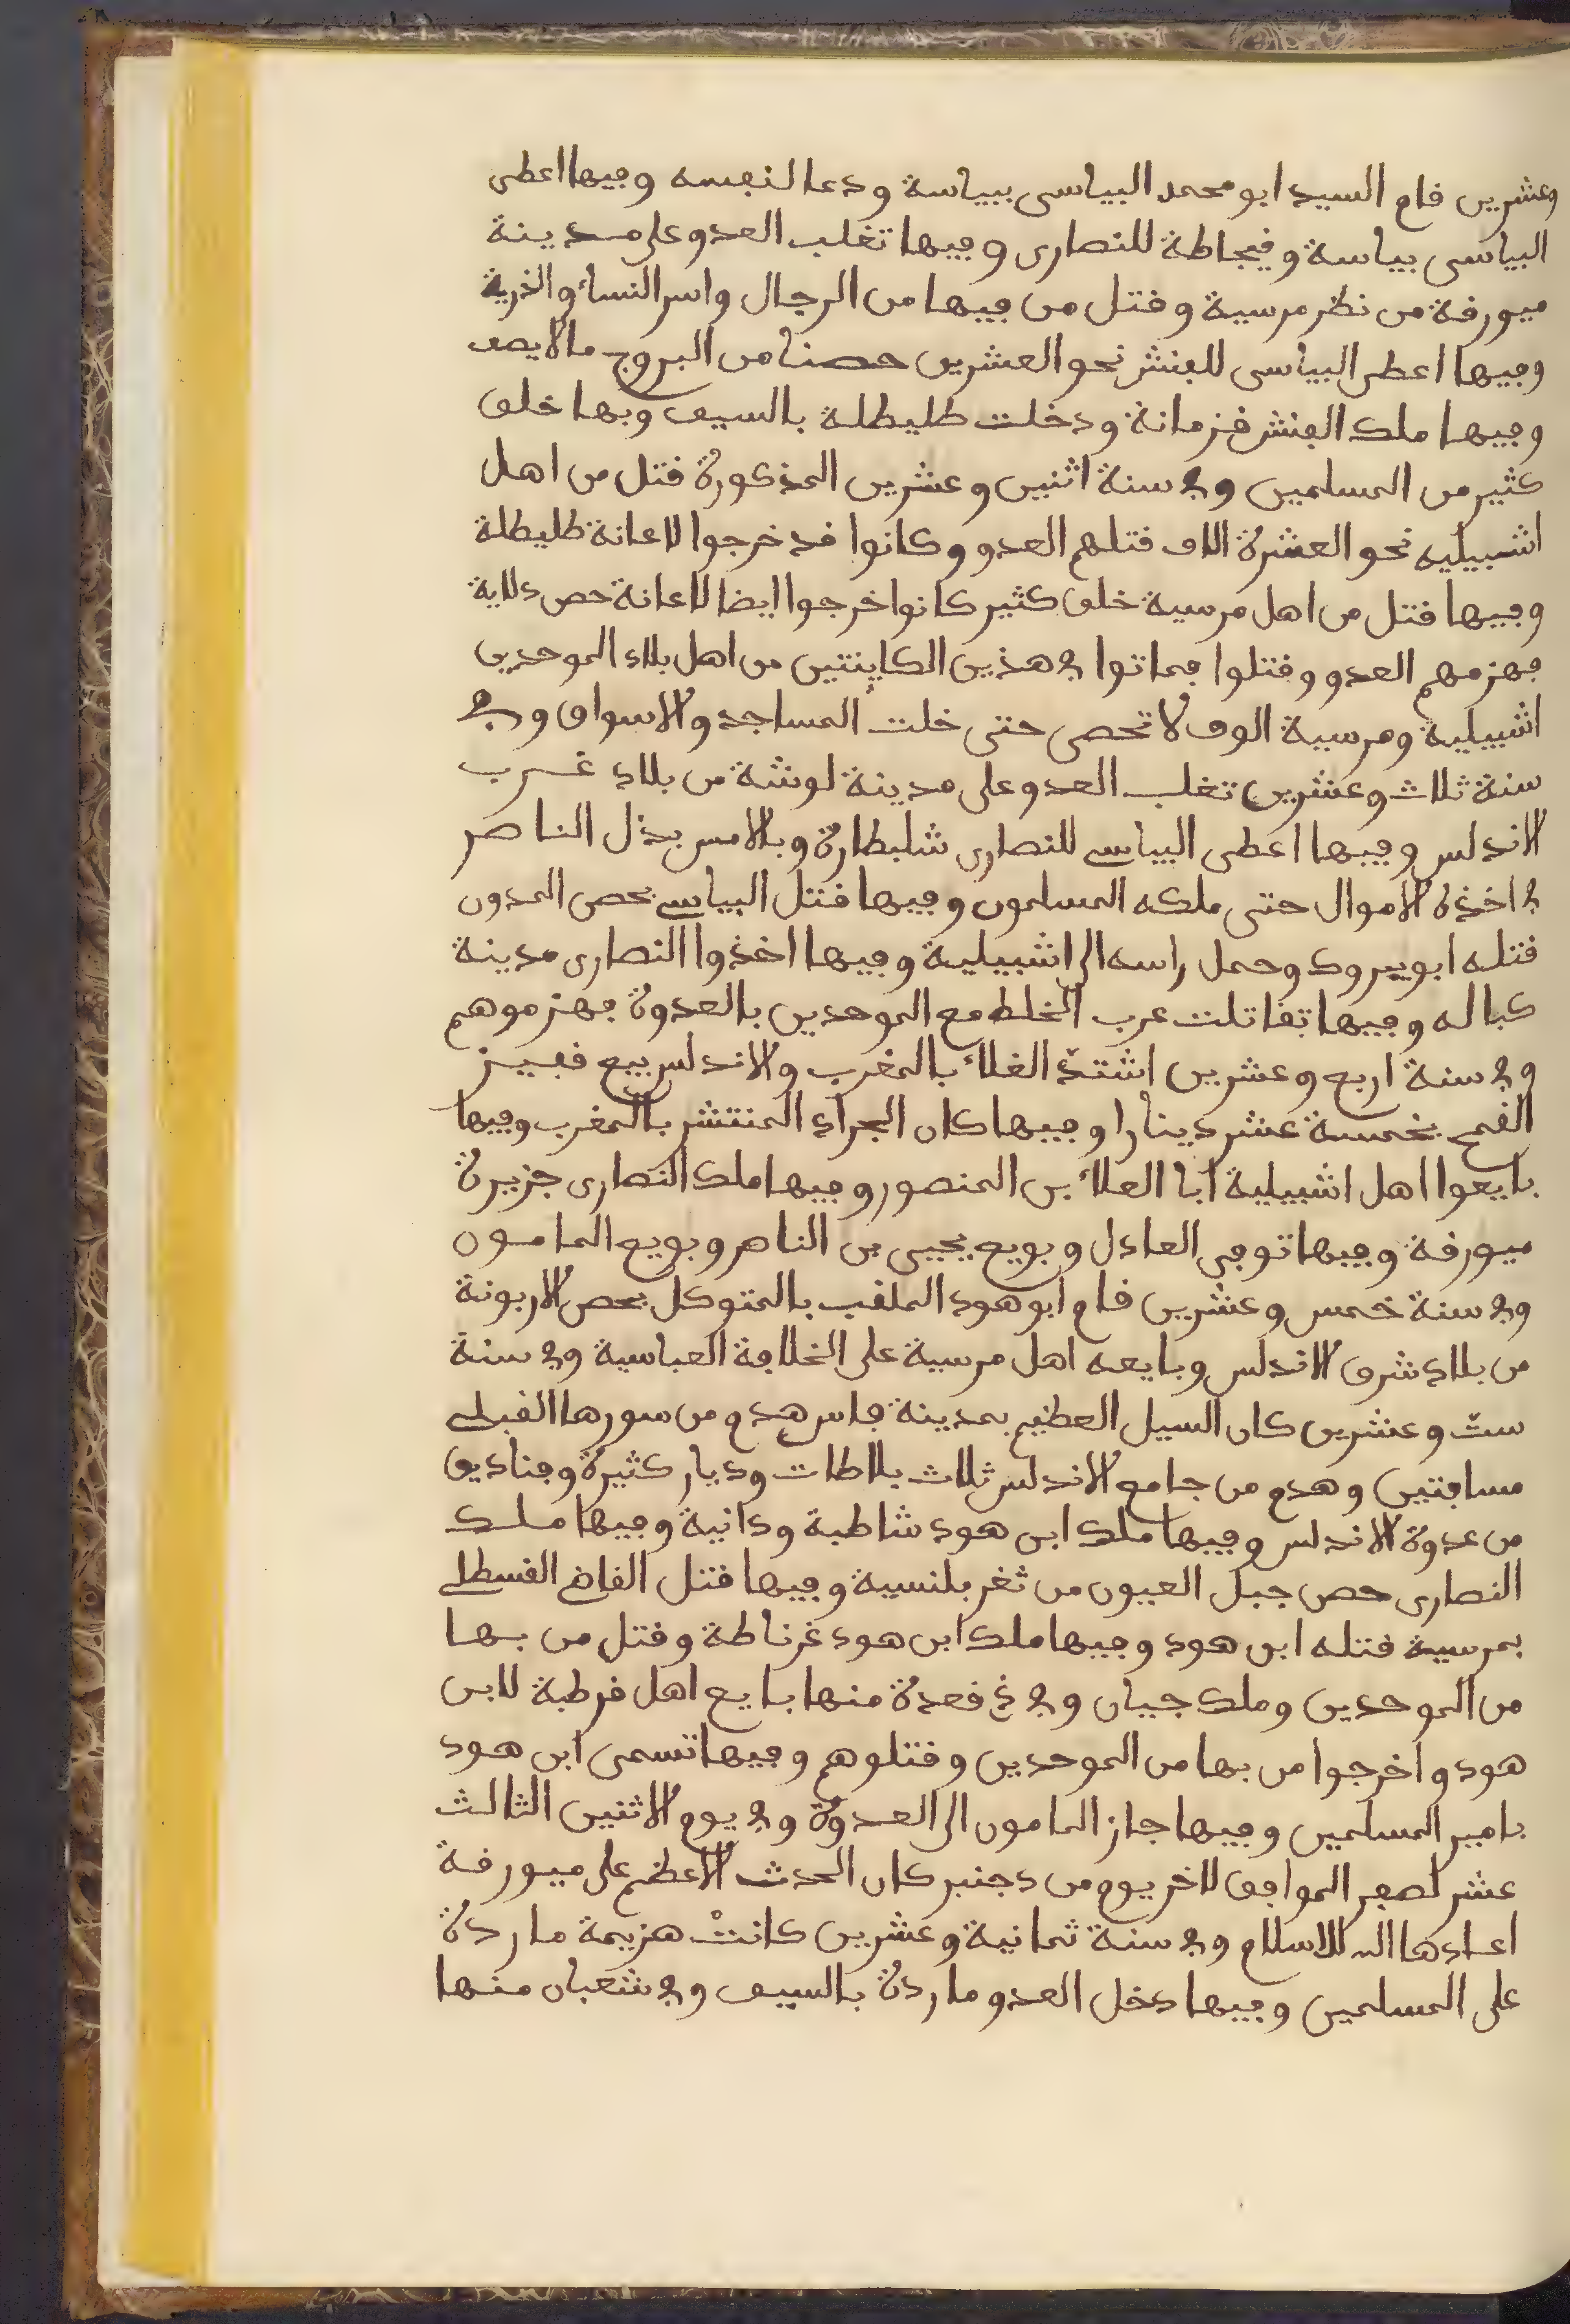 وعشرين قام السيد ابو محمد البياسى ببياسة ودعا لنفسه وفيها اعطى
البياسى بياسة وقيجاطة للنصارى وفيها تغلب العدو على مدينة
ميورقة من نظر مرسية وقتل من فيها من الرجال واسر النساء والذرية
وفيها اعطى البياسى للفنش نحو العشرين حصنا من البروج ما لا يصف
وفيها ملك الفنش قزمانة ودخلت طليطلة بالسيف وبها خلق
كثير من المسلمين وفى سنة اثنين وعشرين المذكورة قتل من اهل
اشبيليه نحو العشرة الاف قتلهم العدو وكانوا قد خرجوا لاعانة طليطلة
وفيها قتل من اهل مرسية خلق كثير كانوا خرجوا ايضا لاعانة حصن دلاية
فهزمهم العدو وقتلوا فماتوا فى هذين الكاينتين من اهل بلاد الموحدين
اشبيلية ومرسية الوف لا تحصى حتى خلت المساجد والاسواق وفى
سنة ثلاث وعشرين تغلب العدو على مدينة لوشة من بلاد غرب
الاندلس وفيها اعطى البياسى للنصارى شلبطارة وبالامس بذل الناصر
فى اخذه الاموال حتى ملكه المسلمون وفيها قتل البياسى بحصن المدور
قتله ابو يبرود وحمل راسه الى اشبيلية وفيها اخذوا النصارى مدينة
كباله وفيها تقاتلت عرب الخلط مع الموحدين بالعدوة فهزموهم
وفى سنة اربع وعشرين اشتد الغلاء بالمغرب والاندلس بيع قفيز
القمح بخمسة عشر دينارا وفيها كان الجراد المنتشر بالمغرب وفيها
بايعوا اهل اشبيلية ابا العلاء بن المنصور وفيها ملك النصارى جزيرة
ميورقة وفيها توفى العادل وبويع يحيى بن الناصر وبويع المامون
وفى سنة خمس وعشرين قام ابو هود الملقب بالمتوكل بحصن الاربونة
من بلاد شرق الاندلس وبايعه اهل مرسية على الخلافة العباسية وفى سنة
ست وعشرين كان السيل العظيم بمدينة فاس هدم من سورها القبلى
مسافتين وهدم من جامع الاندلس ثلاث بلاطات وديار كثيرة وفناديق
من عدوة الاندلس وفيها ملك ابن هود شاطبة ودانية وفيها ملك
النصارى حصن جبل العيون من ثغر بلنسية وفيها قتل القاضى القسطلى
بمرسية قتله ابن هود وفيها ملك ابن هود غرناطة وقتل من بها
من الموحدين وملك جيان وفى ذى قعدة منها بايع اهل قرطبة لابن
هود واخرجوا من بها من الموحدين وقتلوهم وفيها تسمى ابن هود
بامير المسلمين وفيها جاز المامون الى العدوة وفى يوم الاثنين الثالث
عشر لصفر الموافق لاخر يوم من دجنبر كان الحدث الاعظم على ميورقة
اعادها الله للاسلام وفى سنة ثمانية وعشرين كانت هزيمة ماردة
على المسلمين وفيها دخل العدو ماردة بالسيف وفى شعبان منها